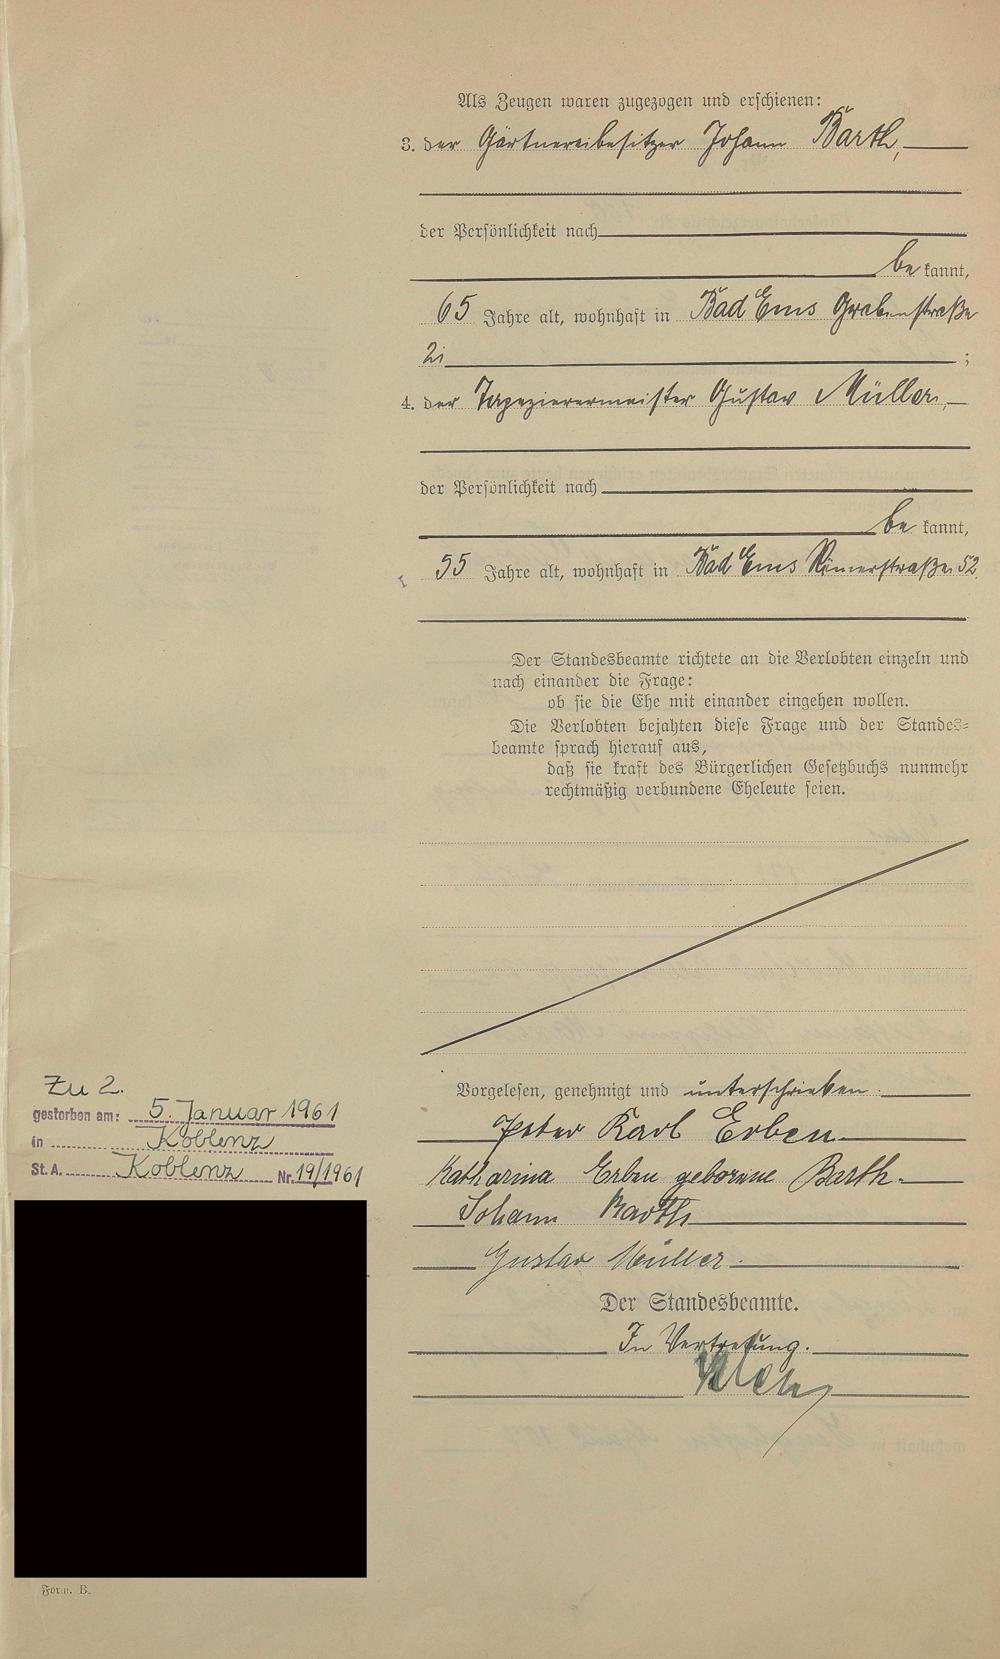 Als Zeugen waren zugezogen und erschienen:
3. der Gärtnereibesitzer Johann Barth,
der Persönlichkeit nach
be kannt,
65 Jahre alt, wohnhaft in Bad Ems Grabenstraße
;
4. der Tapezierermeister Gustav Müller,
der Persönlichkeit nach
be kannt,
55 Jahre alt, wohnhaft in Bad Ems Römerstraße 52
Der Standesbeamte richtete an die Verlobten einzeln und
nach einander die Frage:
ob sie die Ehe mit einander eingehen wollen.
Die Verlobten bejahten diese Frage und der Standes-
beamte sprach hierauf aus,
daß sie kraft des Bürgerlichen Gesetzbuchs nunmehr
rechtmäßig verbundene Eheleute seien.
Vorgelesen, genehmigt und unterschrieben.
Peter Karl Erben
Katharina Erben geborene Barth.
Johann Barth
Gustav Müller.
Der Standesbeamte.
In Vertretung.
Zu 2.
gestorben am: 5. Januar 1961
in Koblenz
St. A. Koblenz Nr. 19/1961
Form. B.